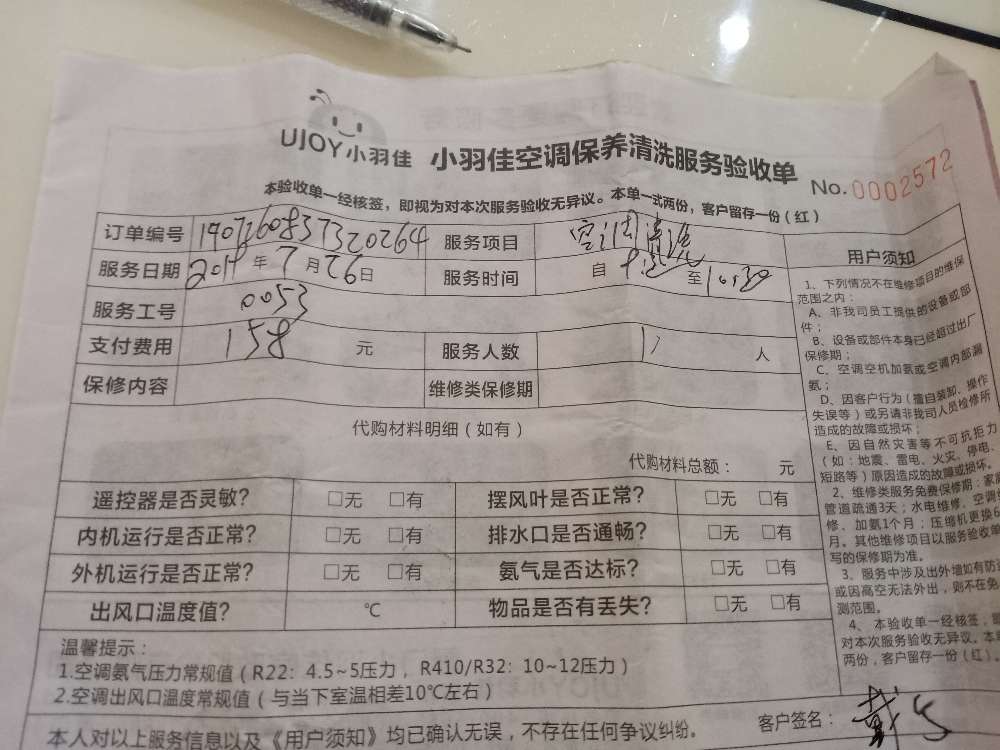 UJOY小羽佳 小羽佳空调保养清洗服务验收单 No.0002572
本验收单一经核签，即视为对本次服务验收无异议。本单一式两份，客户留存一份（红）
订单编号 服务项目
服务日期 2019 年 7 月 26 日 服务时间 自 至 10:30
服务工号 0053
支付费用 158 元 服务人数 1 人
保修内容 维修类保修期
代购材料明细（如有）
代购材料总额： 元
遥控器是否灵敏？ □无 □有 摆风叶是否正常？ □无 □有
内机运行是否正常？ □无 □有 排水口是否通畅？ □无 □有
外机运行是否正常？ □无 □有 氨气是否达标？ □无 □有
出风口温度值？ ℃ 物品是否有丢失？ □无 □有
温馨提示：
1.空调氨气压力常规值（R22：4.5~5压力，R410/R32：10~12压力）
2.空调出风口温度常规值（与当下室温相差10℃左右）
本人对以上服务信息以及《用户须知》均已确认无误，不存在任何争议纠纷。
客户签名： 戴
用户须知
1、下列情况不在维修项目的维保
范围之内：
A、非我司员工提供的设备或部
件；
B、设备或部件本身已经超过出厂
保修期；
C、空调空机加氨或空调内部漏
氨；
D、因客户行为（擅自装卸、操作
失误等）或另请非我司人员检修所
造成的故障或损坏；
E、因自然灾害等不可抗拒力
（如：地震、雷电、火灾、停电、
短路等）原因造成的故障或损坏。
2、维修类服务免费保修期：家庭
管道疏通3天；水电维修、空调
修、加氨1个月；压缩机更换6
月。其他维修项目以服务验收单
写的保修期为准。
3、服务中涉及出外墙如有防盗
或因高空无法外出，则不在免
测范围。
4、本验收单一经核签，即
对本次服务验收无异议。本
两份，客户留存一份（红）。